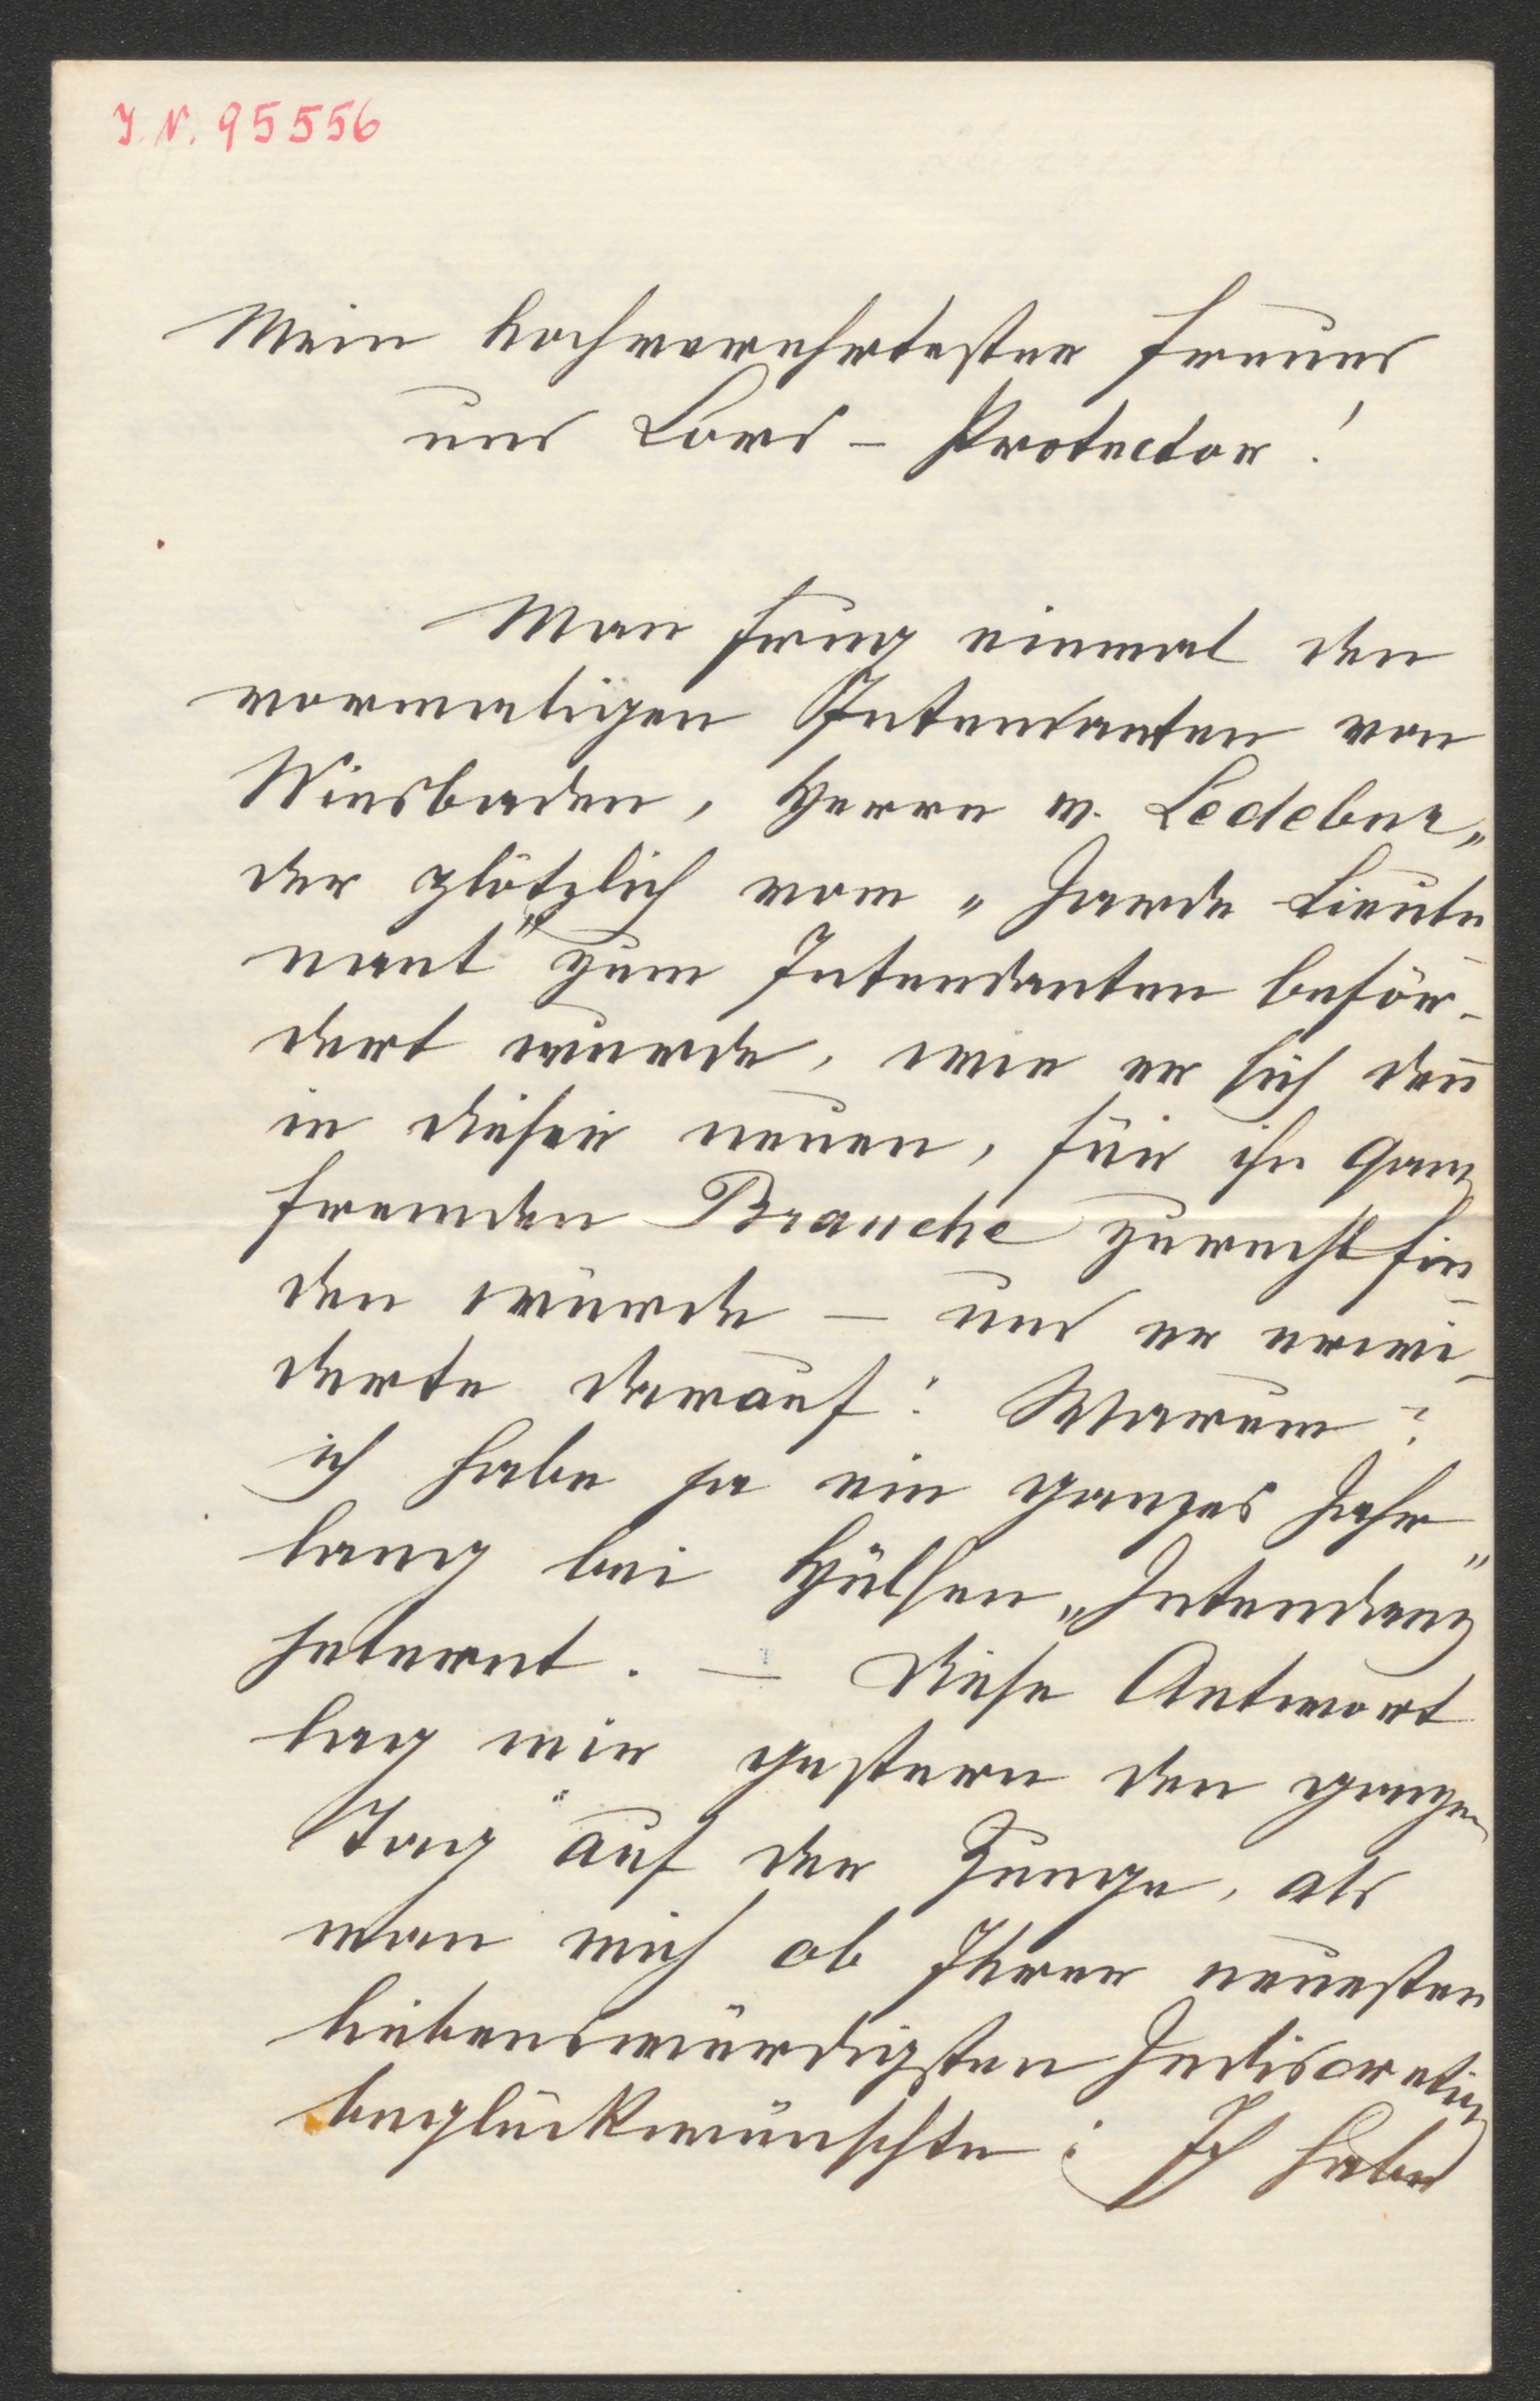 J. N. 95556
Mein hochverehrtester Freund
und Lord - Protector!
Man frug einmal den
vormaligen Intendanten von
Wiesbaden, Herrn v. Ledebur,
der plötzlich vom „Garde Lieute
nant" zum Intendanten beför-
dert wurde, wie er sich deñ
in dieser neuen, für ihn ganz
fremden Branche zurecht fin
den würde — und er erwi-
derte darauf: Warum?
ich habe ja ein ganzes Jahr
lang bei Hülsen „Intendanz"
gelernt. — Diese Antwort
lag mir gestern den ganzen
Tag auf der Zunge, als
man mich ob Ihrer neuesten
liebenswürdigsten Indiscretion
beglückwünschte: Ich habe